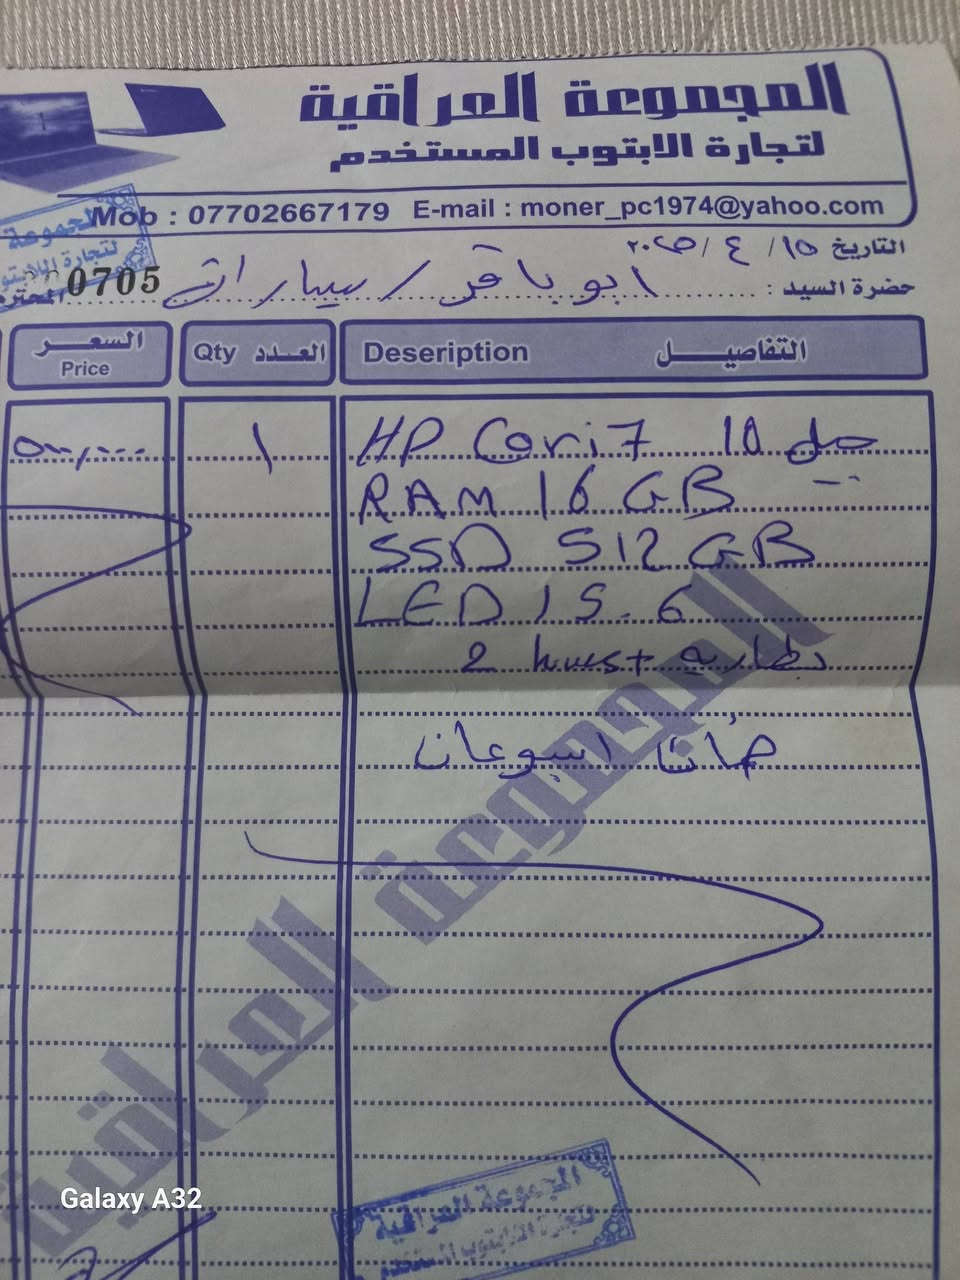 المجموعة العراقية
لتجارة الابتوب المستخدم
Mob : 07702667179 E-mail : moner_pc1974@yahoo.com
التاريخ ١٥ / ٤ / ٢٠٢٥
حضرة السيد : ابو باقر / سيارات المحترم
0705
التفاصيل Deseription العدد Qty السعر Price
HP Cori7 10 جيل ١ ٥٠٠,٠٠٠
RAM 16 GB
SSD 512 GB
LED 15.6
بطارية
ضمان اسبوعان
المجموعة العراقية
المجموعة العراقية
لتجارة الابتوب المستخدم
Galaxy A32